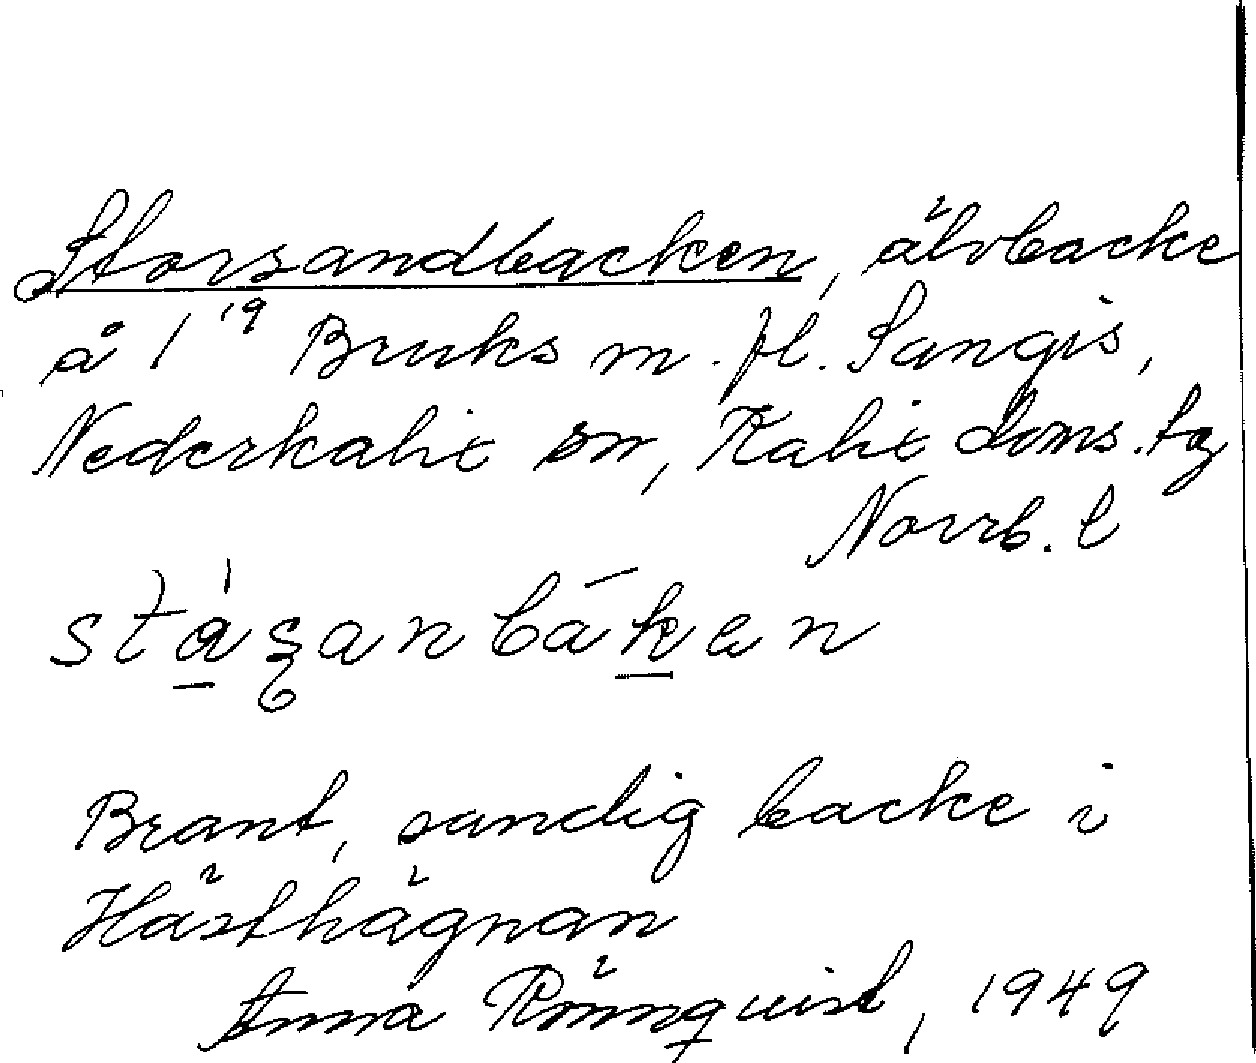 Storsandbacken, älvbacke
å 1¹⁹ Bruks m. fl. Sangis,
Nederkalix sn, Kalix doms. tg
Norrb. l
stásanbáken
Brant, sandig backe i
Hästhägnan
Anna Rönnquist, 1949